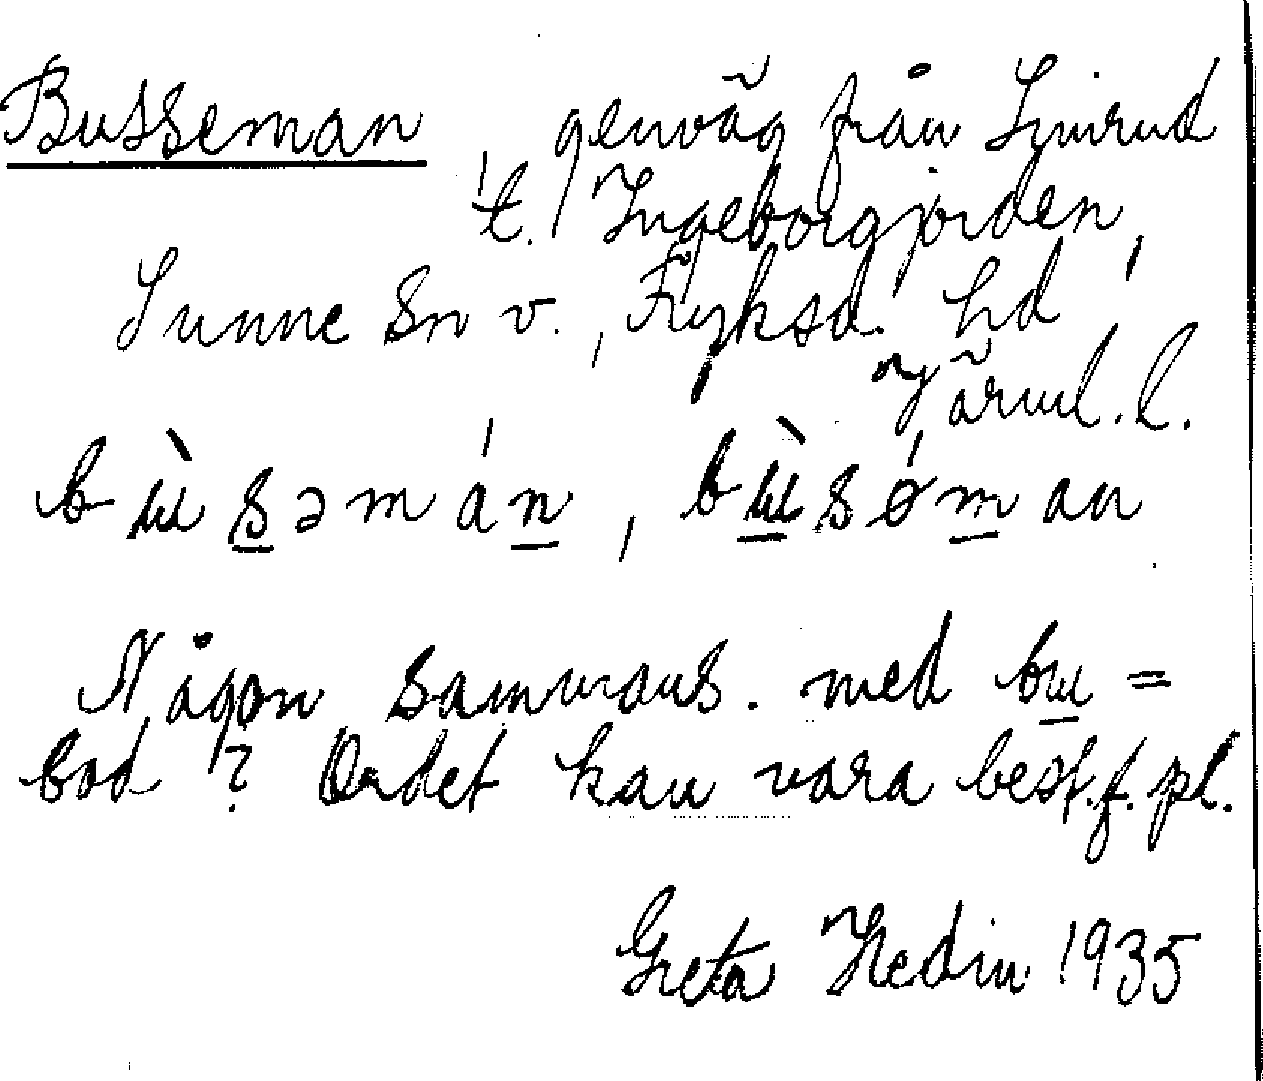 Busseman genväg från
t. Ingeborgjorden,
Sunne Sn v., Fryksd. hd
Värml. l.
Någon sammans. med bɯ =
bod? Ordet kan vara best. f. pl.
Greta Hedin 1935